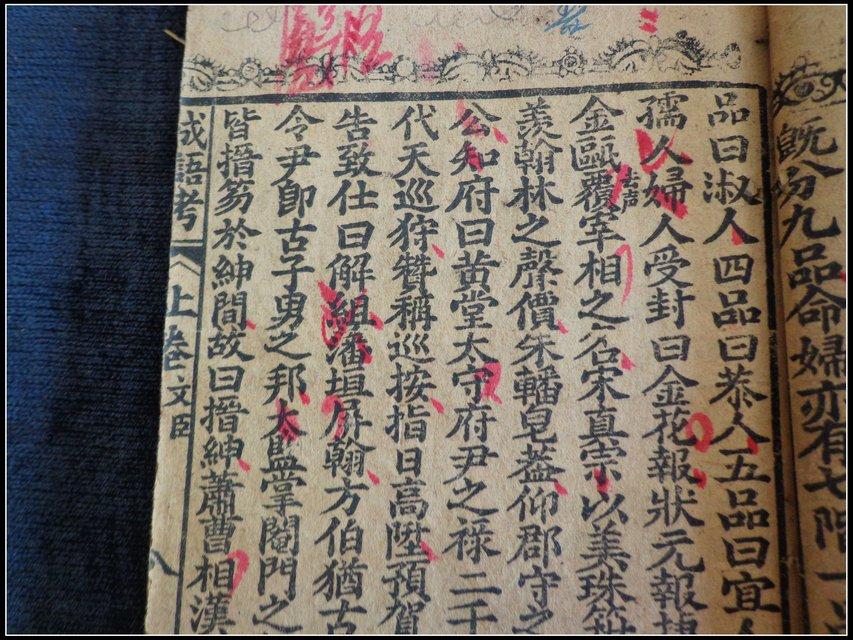 既分九品命婦亦有七階一品
品曰淑人四品曰恭人五品曰宜人
孺人婦人受封曰金花報狀元報捷
金甌覆宰相之名宋真宗以美珠箝
去声
羨翰林之聲價朱轓皂葢仰郡守之
公知府曰黃堂太守府尹之祿二千
代天巡狩贊稱巡按指日高陞預賀
告致仕曰解組潘垣屏翰方伯猶古
令尹卽古子男之邦太監掌閹門之
皆搢笏於紳間故曰搢紳蕭曹相漢
成語考 上卷 文臣 八